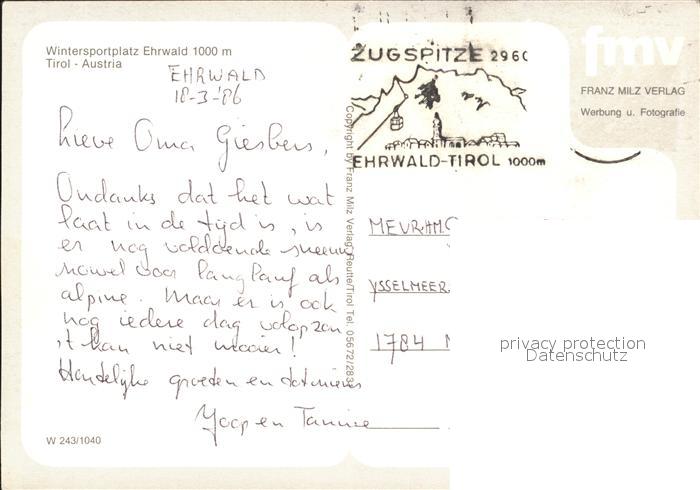 Wintersportplatz Ehrwald 1000 m
Tirol - Austria
EHRWALD
18-3-'86
Lieve Oma Giesbers,
Ondanks dat het wat
laat in de tijd is, is
er nog voldoende sneeuw
zowel voor langlauf als
alpine. Maar er is ook
nog iedere dag volop zon
't kan niet mooier!
Hartelijke groeten en tot ziens
Joop en Tannie
W 243/1040
Copyright by Franz Milz Verlag, Reutte/Tirol Tel. 05672/283
ZUGSPITZE 2960
EHRWALD-TIROL 1000m
fmv
FRANZ MILZ VERLAG
Werbung u. Fotografie
MEVR.
YSSELMEER
1784
privacy protection
Datenschutz